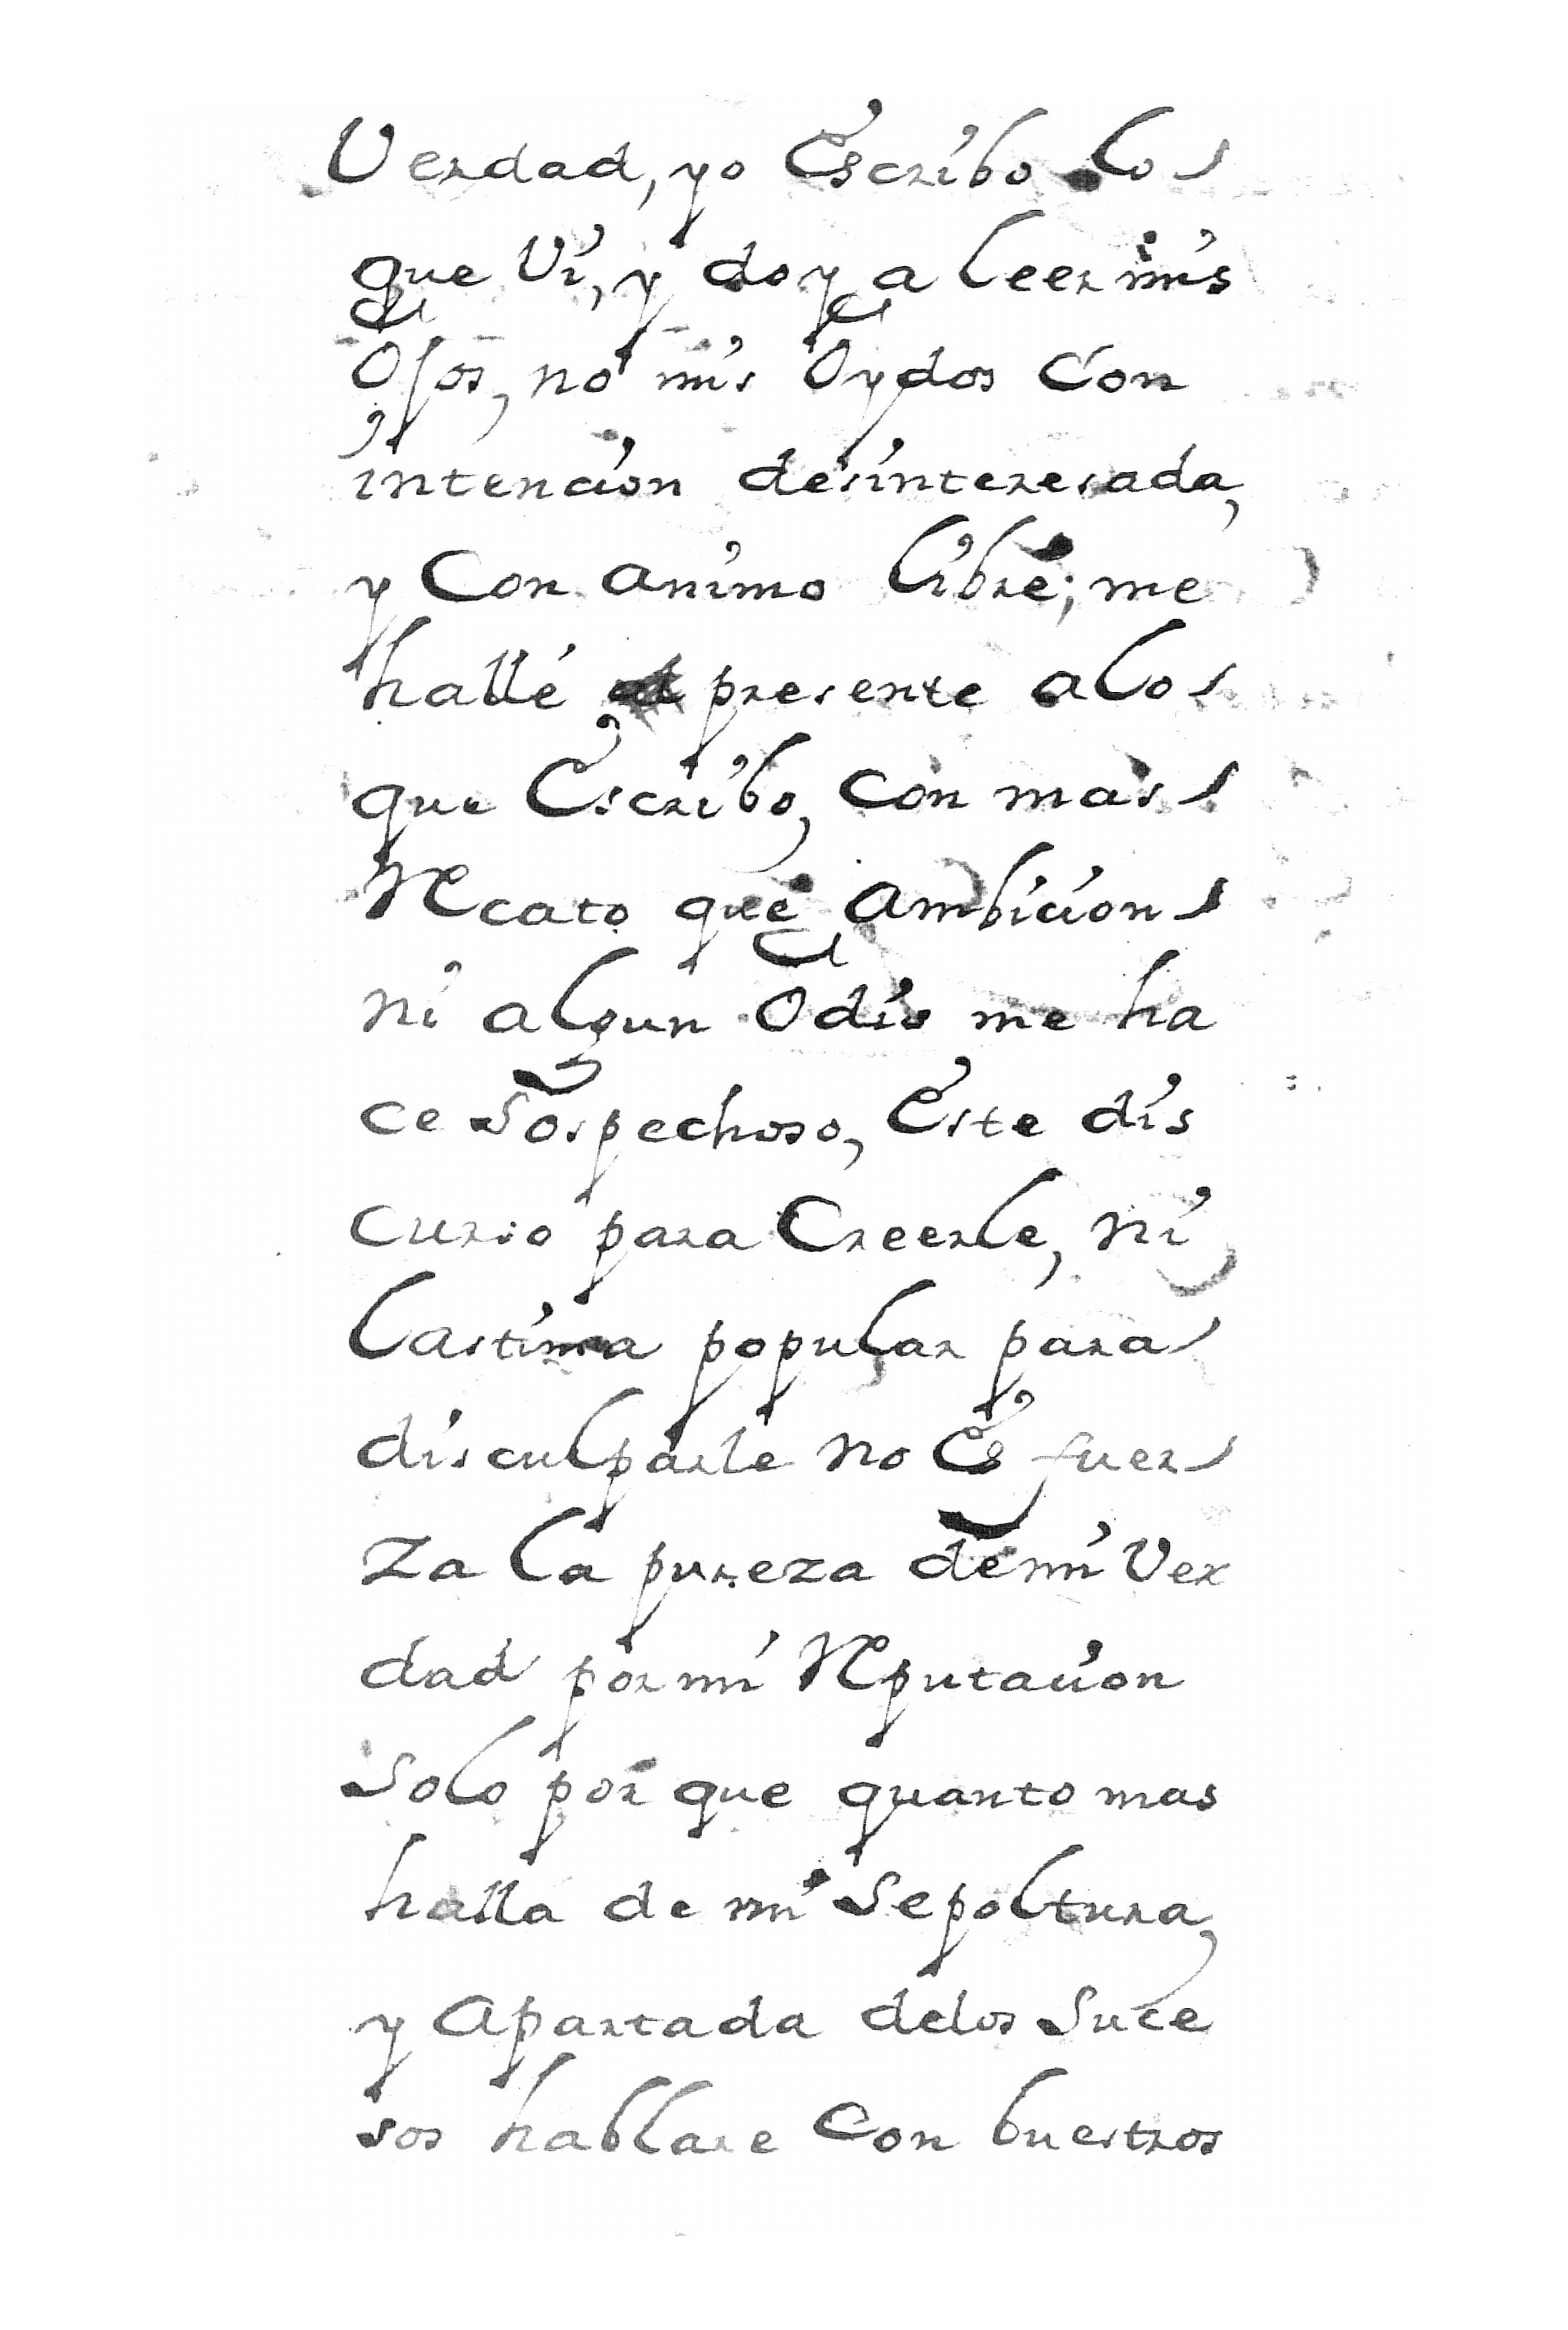 Verdad, yo Escribo lo
que Vi, y doy a leer mis
Ojos, no mis Oydos Con
intencion desinteresada,
y Con animo libre; me
hallé presente a lo
que Escribo, Con mas
Recato que Ambicion
ni algun Odio me ha
ce Sospechoso, Este dis
curso para Creerle, ni
lastima popular para
disculparle no Es fuer
za la pureza de mi Ver
dad por mi Reputacion
Solo por que quanto mas
halla de mi Sepoltura,
y Apartada delos Suce
sos hablare Con buestros